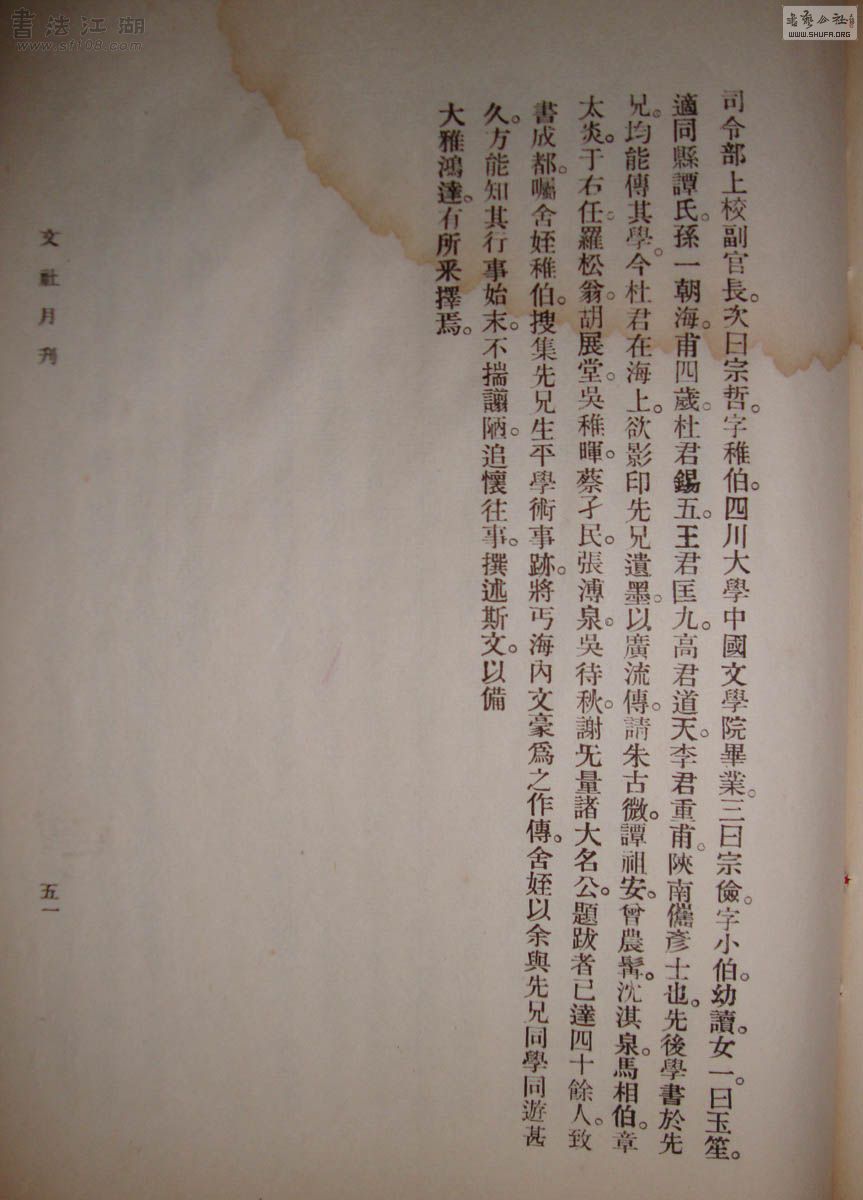 書法江湖
www.sf108.com
書藝公社
WWW.SHUFA.ORG
司令部上校副官長。次曰宗哲。字稚伯。四川大學中國文學院畢業。三曰宗儉。字小伯。幼讀。女一。曰玉笙。
適同縣譚氏。孫一朝海。甫四歲。杜君錫五。王君匡九。高君道天。李君重甫。陝南儁彥士也。先後學書於先
兄。均能傳其學。今杜君在海上。欲影印先兄遺墨。以廣流傳。請朱古微。譚祖安。曾農髯。沈淇泉。馬相伯。章
太炎。于右任。羅松翁。胡展堂。吳稚暉。蔡孑民。張溥泉。吳待秋。謝无量諸大名公。題跋者已達四十餘人。致
書成都。囑舍姪稚伯。搜集先兄生平學術事跡。將丐海內文豪爲之作傳。舍姪以余與先兄同學同遊甚
久。方能知其行事始末。不揣譾陋。追懷往事。撰述斯文。以備
大雅鴻達。有所采擇焉。
文社月刊
五一